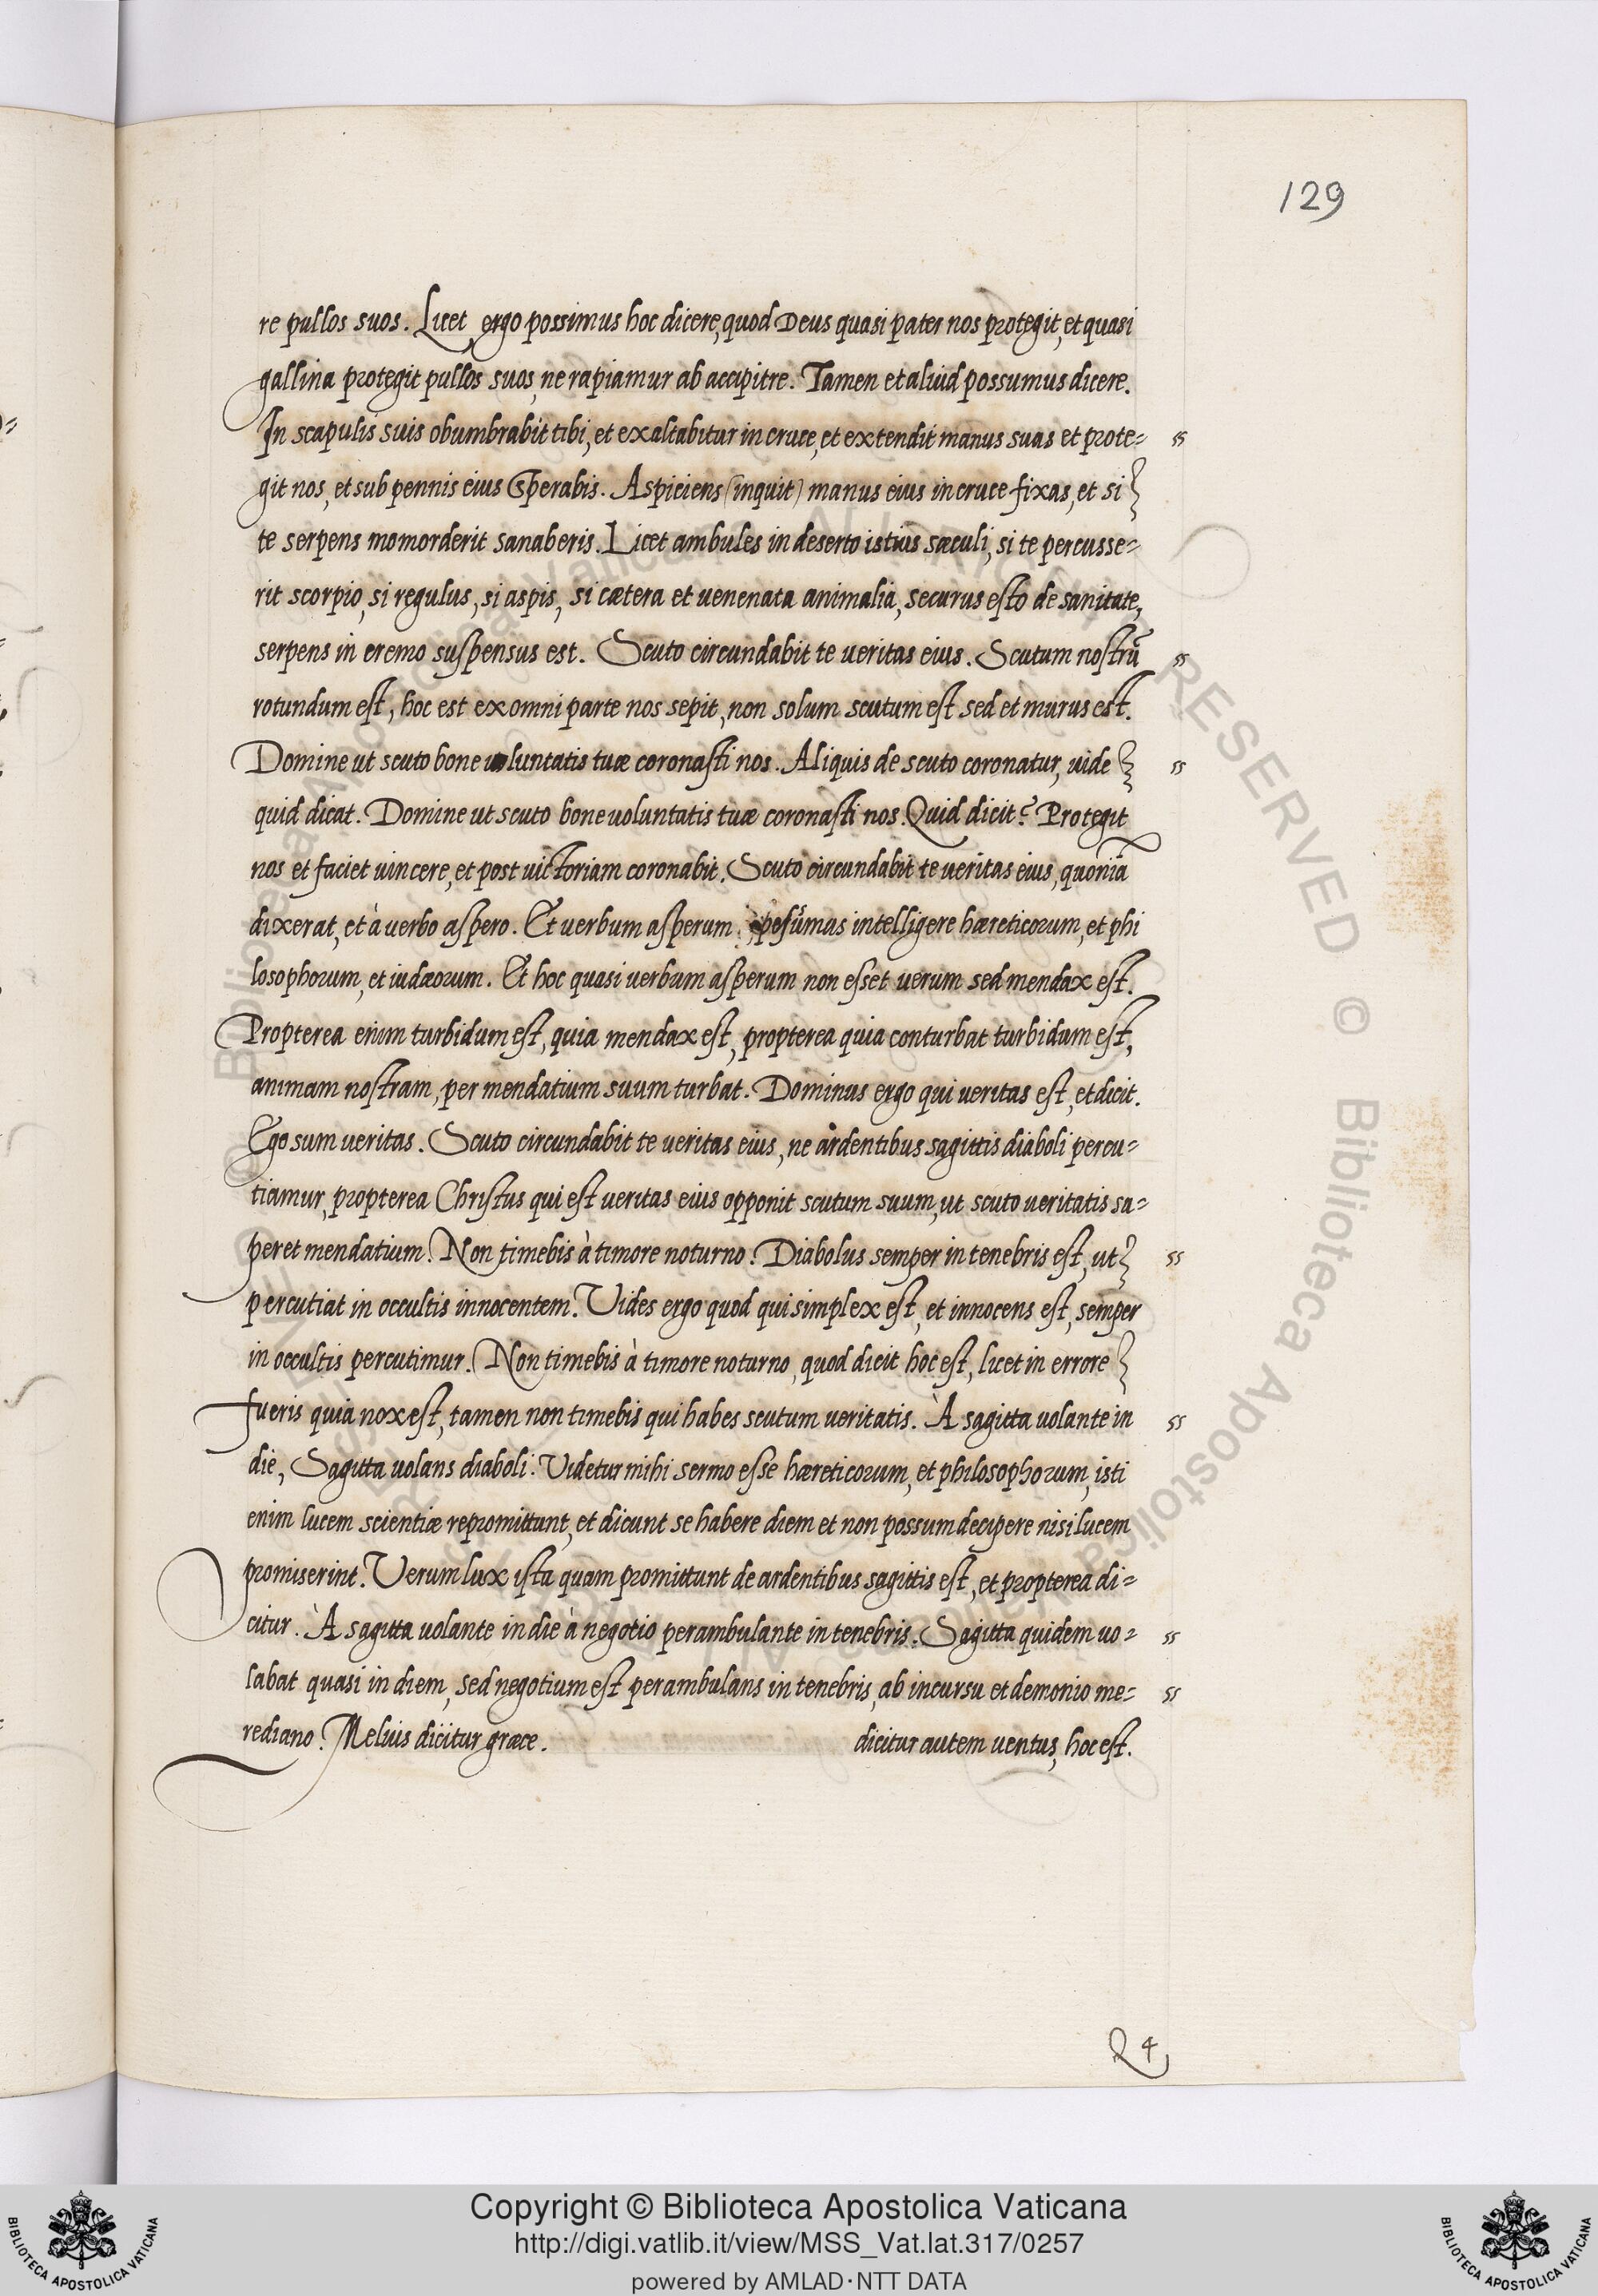 129
re pullos suos. Licet ergo possimus hoc dicere, quod Deus quasi pater nos protegit, et quasi
gallina protegit pullos suos, ne rapiamur ab accipitre. Tamen et aliud possumus dicere.
In scapulis suis obumbrabit tibi, et exaltabitur in cruce, et extendit manus suas et prote= ss
git nos, et sub pennis eius sperabis. Aspiciens (inquit) manus eius in cruce fixas, et si
te serpens momorderit sanaberis. Licet ambules in deserto istius sæculi, si te percusse=
rit scorpio, si regulus, si aspis, si cætera et uenenata animalia, securus esto de sanitate,
serpens in eremo suspensus est. Scuto circundabit te ueritas eius. Scutum nostrũ ss
rotundum est, hoc est ex omni parte nos sepit, non solum scutum est sed et murus est.
Domine ut scuto bone uoluntatis tuæ coronasti nos. Aliquis de scuto coronatur, uide ss
quid dicat. Domine ut scuto bone uoluntatis tuæ coronasti nos. Quid dicit? Protegit
nos et faciet uincere, et post uictoriam coronabit. Scuto circundabit te ueritas eius, quoniã
dixerat, et à uerbo aspero. Et uerbum asperum intelligere hæreticorum, et phi
losophorum, et iudæorum. Et hoc quasi uerbum asperum non esset uerum sed mendax est.
Propterea enim turbidum est, quia mendax est, propterea quia conturbat turbidum est,
animam nostram, per mendatium suum turbat. Dominus ergo qui ueritas est, et dicit.
Ego sum ueritas. Scuto circundabit te ueritas eius, ne ardentibus sagittis diaboli percu=
tiamur, propterea Christus qui est ueritas eius opponit scutum suum, ut scuto ueritatis sa=
peret mendatium. Non timebis à timore noturno. Diabolus semper in tenebris est, ut ss
percutiat in occultis innocentem. Vides ergo quod qui simplex est, et innocens est, semper
in occultis percutimur. Non timebis à timore noturno, quod dicit hoc est, licet in errore
fueris quia nox est, tamen non timebis qui habes scutum ueritatis. À sagitta uolante in ss
die, Sagitta uolans diaboli. Videtur mihi sermo esse hæreticorum, et philosophorum, isti
enim lucem scientiæ repromittunt, et dicunt se habere diem et non possum decipere nisi lucem
promiserint. Verum lux ista quam promittunt de ardentibus sagittis est, et propterea di=
citur. À sagitta uolante in die à negotio perambulante in tenebris. Sagitta quidem uo= ss
labat quasi in diem, sed negotium est perambulans in tenebris, ab incursu et demonio me= ss
rediano. Melius dicitur græce. dicitur autem uentus, hoc est.
R 4
Copyright © Biblioteca Apostolica Vaticana
http://digi.vatlib.it/view/MSS_Vat.lat.317/0257
powered by AMLAD·NTT DATA
BIBLIOTECA APOSTOLICA VATICANA
BIBLIOTECA APOSTOLICA VATICANA